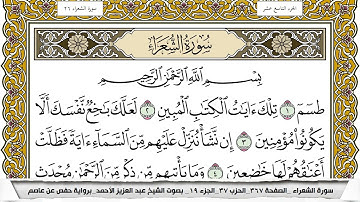 الجزء التاسع عشر
سورة الشعراء ٢٦
سُورَةُ الشُّعَرَاءِ
بِسْمِ اللَّهِ الرَّحْمَٰنِ الرَّحِيمِ
طسٓمٓ ١ تِلْكَ ءَايَٰتُ الْكِتَٰبِ الْمُبِينِ ٢ لَعَلَّكَ بَٰخِعٌ نَّفْسَكَ أَلَّا
يَكُونُوا۟ مُؤْمِنِينَ ٣ إِن نَّشَأْ نُنَزِّلْ عَلَيْهِم مِّنَ السَّمَآءِ ءَايَةً فَظَلَّتْ
أَعْنَٰقُهُمْ لَهَا خَٰضِعِينَ ٤ وَمَا يَأْتِيهِم مِّن ذِكْرٍ مِّنَ الرَّحْمَٰنِ مُحْدَثٍ
سورة الشعراء _ الصفحة ٣٦٧_ الحزب ٣٧_ الجزء ١٩_ بصوت الشيخ عبد العزيز الأحمد_ برواية حفص عن عاصم